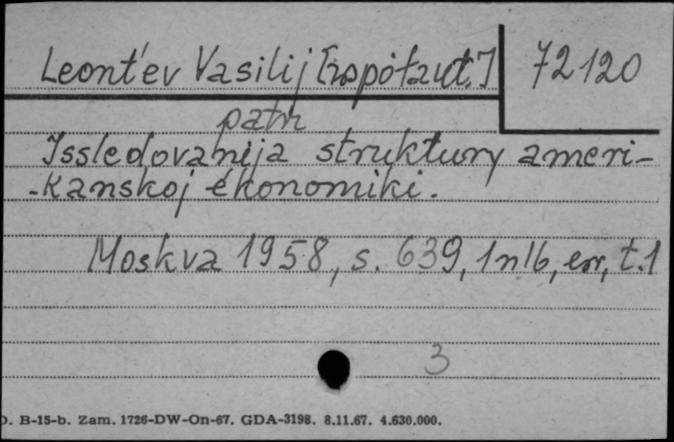 Leont'ev Vasilij [współaut.] 72120
patr
Issledovanija struktury ameri-
-kanskoj ékonomiki.
Moskva 1958, s. 639, 1 nlb, err, t.1
3
D. B-15-b. Zam. 1726-DW-On-67. GDA-3198. 8.11.67. 4.630.000.